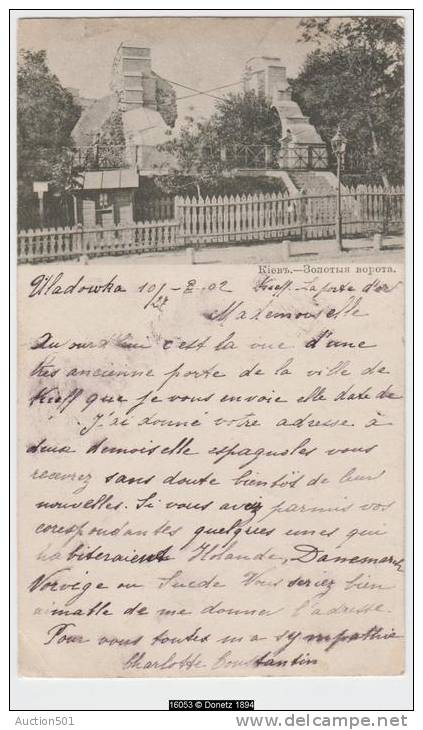 Кіевъ.—Золотыя ворота.
Uladowka 10/27 - II - 02 Kieff - La porte d'or
Mademoiselle
Aujourd'hui c'est la vue d'une
très ancienne porte de la ville de
Kieff que je vous envoie elle date de
J'ai donné votre adresse à
deux demoiselle espagnoles vous
recevrez sans doute bientôt de leur
nouvelles. Si vous avez parmis vos
corespondantes quelques unes qui
habiteraient Holande, Danemark
Norvège ou Suede Vous seriez bien
aimable de me donner l'adresse.
Pour vous toutes ma sympathie
Charlotte Constantin
16053 © Donetz 1894
Auction501
DELCAMPE.NET